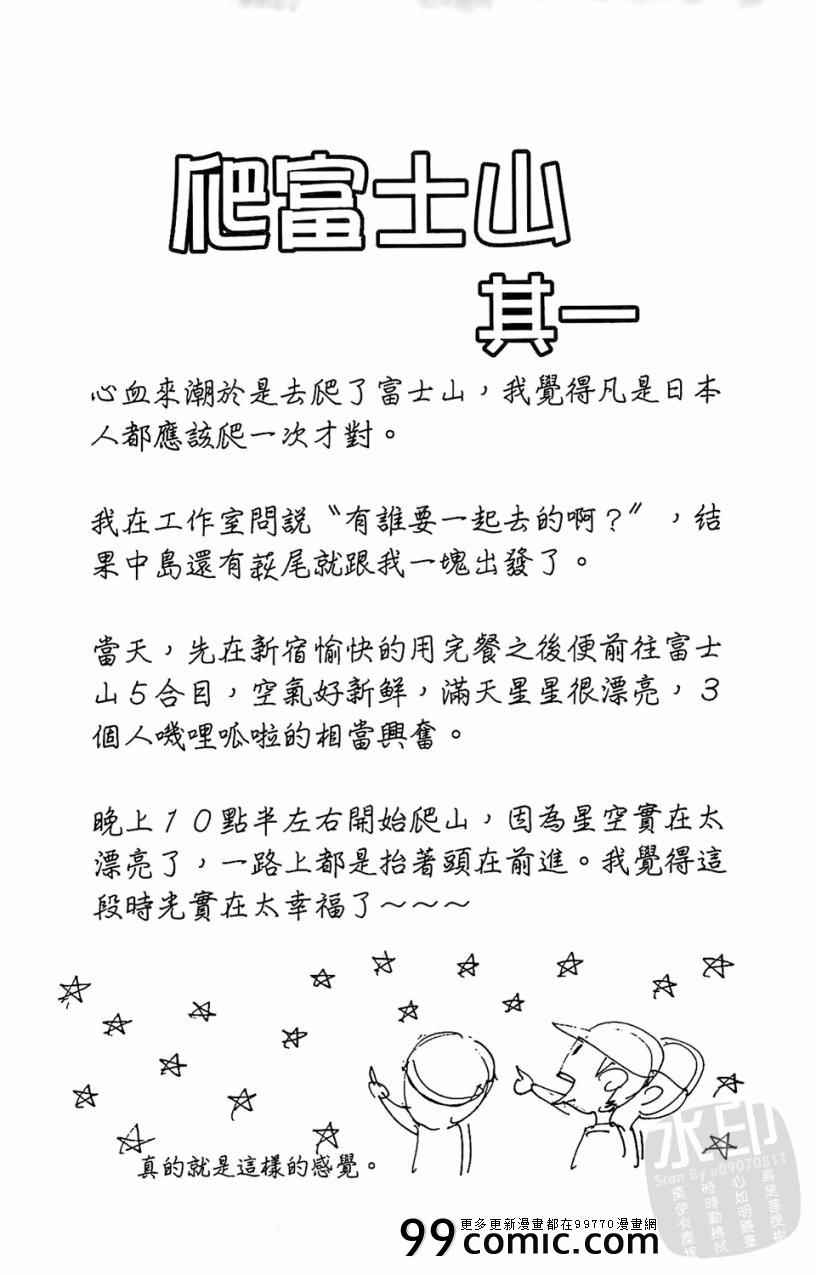 爬富士山
其一
心血來潮於是去爬了富士山，我覺得凡是日本
人都應該爬一次才對。
我在工作室問說〝有誰要一起去的啊？〞，結
果中島還有萩尾就跟我一塊出發了。
當天，先在新宿愉快的用完餐之後便前往富士
山５合目，空氣好新鮮，滿天星星很漂亮，３
個人嘰哩呱啦的相當興奮。
晚上１０點半左右開始爬山，因為星空實在太
漂亮了，一路上都是抬著頭在前進。我覺得這
段時光實在太幸福了～～～
真的就是這樣的感覺。
水印
Scan By a09070811
更多更新漫畫都在99770漫畫網
99comic.com